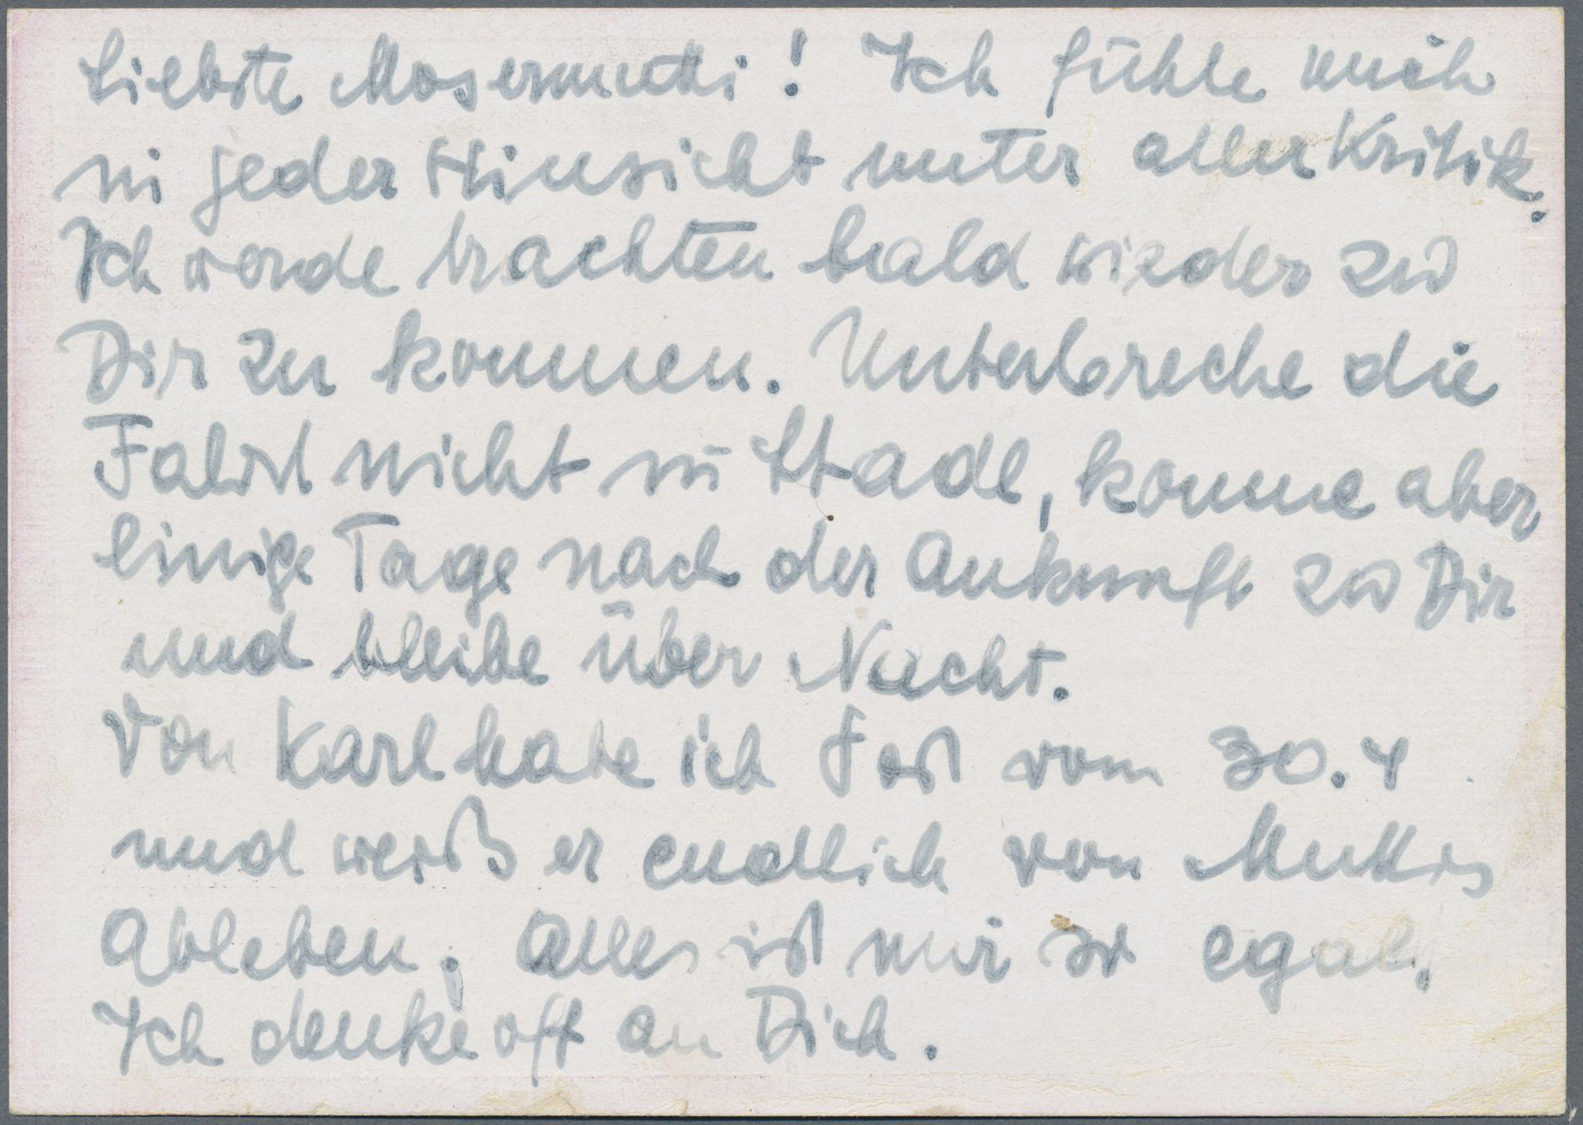 Liebste Mosermutti! Ich fühle mich
in jeder Hinsicht unter aller Kritik.
Ich werde trachten bald wieder zu
Dir zu kommen. Unterbreche die
Fahrt nicht in Stadl, komme aber
einige Tage nach der Ankunft zu Dir
und bleibe über Nacht.
Von Karl habe ich Post vom 30.4
und weiß er endlich von Muttis
Ableben. Alles ist mir so egal,
Ich denke oft an Dich.